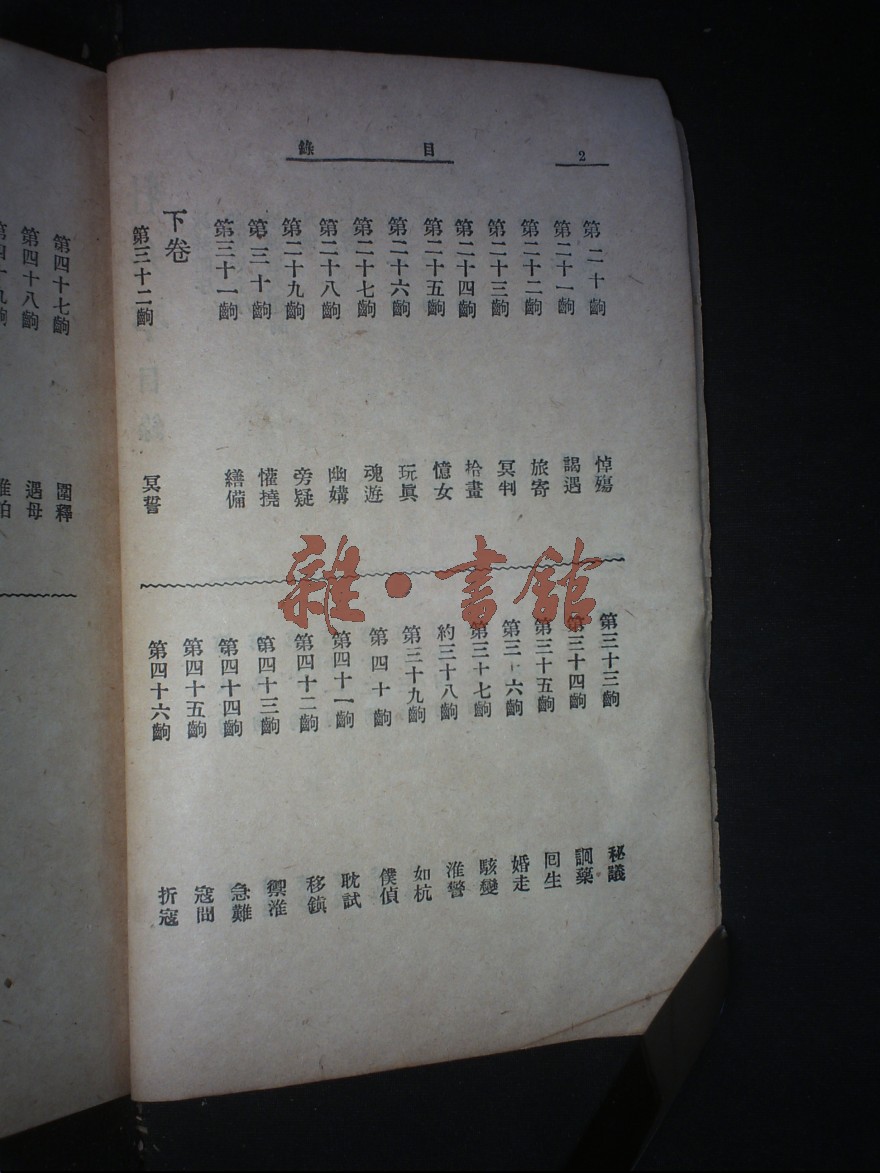 2
目錄
第二十齣 悼殤
第二十一齣 謁遇
第二十二齣 旅寄
第二十三齣 冥判
第二十四齣 拾畫
第二十五齣 憶女
第二十六齣 玩眞
第二十七齣 魂遊
第二十八齣 幽媾
第二十九齣 旁疑
第三十齣 懽撓
第三十一齣 繕備
下卷
第三十二齣 冥誓
第三十三齣 秘議
第三十四齣 詗藥
第三十五齣 回生
第三十六齣 婚走
第三十七齣 駭變
約三十八齣 淮警
第三十九齣 如杭
第四十齣 僕偵
第四十一齣 耽試
第四十二齣 移鎮
第四十三齣 禦淮
第四十四齣 急難
第四十五齣 寇間
第四十六齣 折寇
第四十七齣 圍釋
第四十八齣 遇母
第四十九齣 淮泊
雜·書館